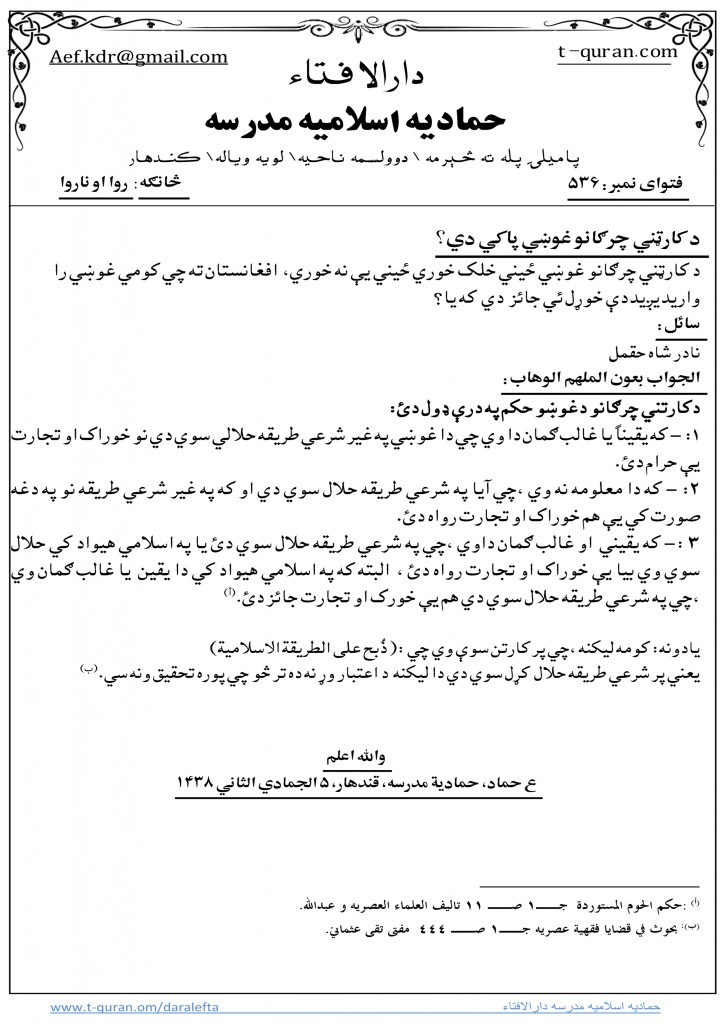 Aef.kdr@gmail.com
t-quran.com
دارالافتاء
حمادیه اسلامیه مدرسه
پامیلۍ پله ته څېرمه \ دوولسمه ناحیه \ لویه ویاله \ کندهار
فتوای نمبر: ۵۳۶
څانګه: روا او ناروا
د کارټني چرګانو غوښي پاکي دي؟
د کارټني چرګانو غوښي ځیني خلک خوري ځیني یې نه خوري، افغانستان ته چي کومي غوښي را
واریدیږي ددې خوړل ئې جائز دي که یا؟
سائل:
نادر شاه حقمل
الجواب بعون الملهم الوهاب:
دکارتني چرګانو دغوښو حکم په درې ډول دئ:
۱: – که یقیناً یا غالب ګمان دا وي چي دا غوښي په غیر شرعي طریقه حلالي سوي دي نو خوراک او تجارت
یې حرام دئ.
۲: – که دا معلومه نه وي ،چي آیا په شرعي طریقه حلال سوي دي او که په غیر شرعي طریقه نو په دغه
صورت کي یې هم خوراک او تجارت رواه دئ.
۳ :– که یقیني او غالب ګمان داوي ،چي په شرعي طریقه حلال سوي دئ یا په اسلامي هیواد کي حلال
سوي وي بیا یې خوراک او تجارت رواه دئ ، البته که په اسلامي هیواد کي دا یقین یا غالب ګمان وي
،چي په شرعي طریقه حلال سوي دي هم یې خورک او تجارت جائز دئ.(أ)
یادونه: کومه لیکنه ،چي پر کارتن سوې وي چي :(ذُبح علی الطریقة الاسلامیة)
یعني پر شرعي طریقه حلال کړل سوي دي دا لیکنه د اعتبار وړ نه ده تر څو چي پوره تحقیق ونه سي.(ب)
والله اعلم
ع حماد، حمادیة مدرسه، قندهار، ۵ الجمادي الثاني ۱۴۳۸
(أ) :حکم الحوم المستوردة جـــ۱ صـــ ۱۱ تالیف العلماء العصریه و عبدالله.
(ب): بحوث في قضایا فقهیة عصریه جـــ۱ صـــ ٤٤٤ مفتي تقی عثماني.
www.t-quran.om/daralefta
حمادیه اسلامیه مدرسه دارالافتاء